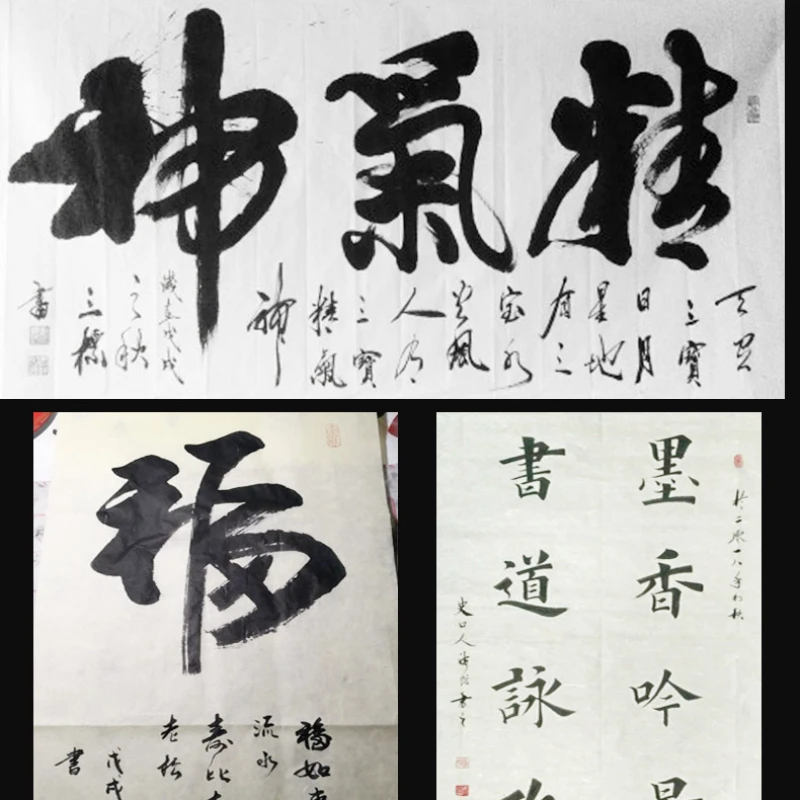 精氣神
天有
三寶
日月
星地
有三
宝水
火風
人有
三寶
精氣
神
歲在戊戌
之秋
三標
書
福
福如東
流水
壽比
老松
戊戌
書
於二零一八年初秋
墨香吟
書道詠
史口人